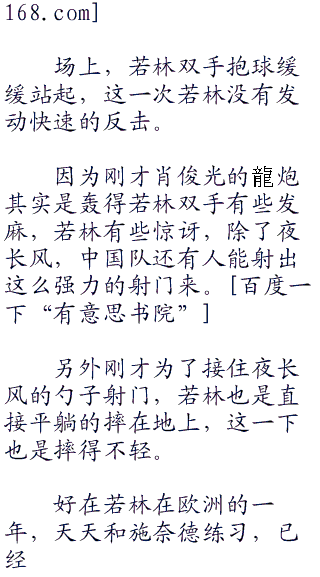 168.com]
场上，若林双手抱球缓
缓站起，这一次若林没有发
动快速的反击。
因为刚才肖俊光的龍炮
其实是轰得若林双手有些发
麻，若林有些惊讶，除了夜
长风，中国队还有人能射出
这么强力的射门来。[百度一
下“有意思书院”]
另外刚才为了接住夜长
风的勺子射门，若林也是直
接平躺的摔在地上，这一下
也是摔得不轻。
好在若林在欧洲的一
年，天天和施奈德练习，已
经